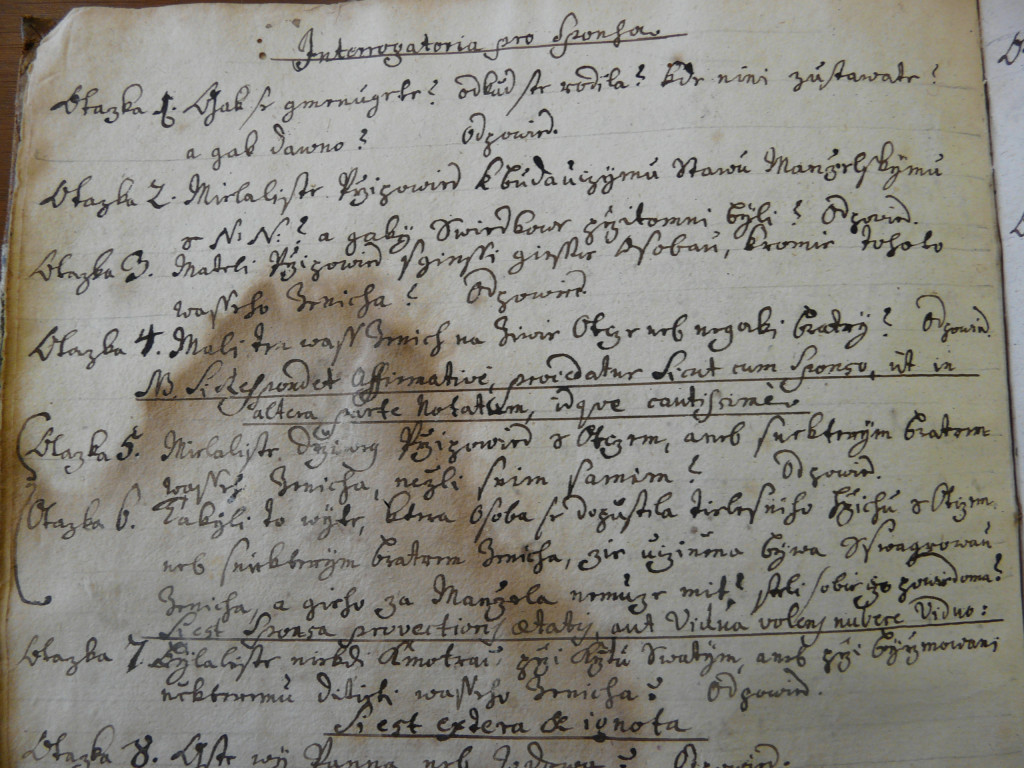 Interrogatoria pro Sponsa.
Otazka 1. Gjak se gmenugete? odkud ste rodila? kde nini zustawate?
a gak dawno? Odpowied.
Otazka 2. Mielaliste Przipowied k budauczymu Stawu Manzelskymu
s N. N.? a gaky Swiedkowe przitomni byli? Odpowied.
Otazka 3. Mateli Przipowied s ginssi Osobau, kromie tohoto
wasseho Zenicha? Odpowied.
Otazka 4. Mali ten wass Zenich na Ziwie Otcze neb negaki bratry? Odpowied.
NB. Si Respondet Affirmative, procedatur Sicut cum Sponso, ut in
altera parte Notatum, idque cautissime.
Otazka 5. Mielaliste drziweg Przipowied s Otczem, aneb s niekterym bratrem
wasseho Zenicha, nezli s nim samim? Odpowied.
Otazka 6. to wyte, ktera Osoba se dopustila tielesniho hrzichu s Otczem,
neb s niekterym bratrem Zenicha, zie uczinena bywa Sswagrowau
Zenicha, a gieho za Manzela nemuze mit? steli sobie powiedoma?
Si est Sponsa provectioris aetatis, aut Vidua volens nubere Viduo:
Otazka 7. Bylaliste niekdi Kmotrau przi Krztu Swatym, aneb przi byrzmowani
nekteremu ditieti wasseho Zenicha? Odpowied.
Si est extera & ignota
Otazka 8. Gste wy Panna neb Wdowa? Odpowied.